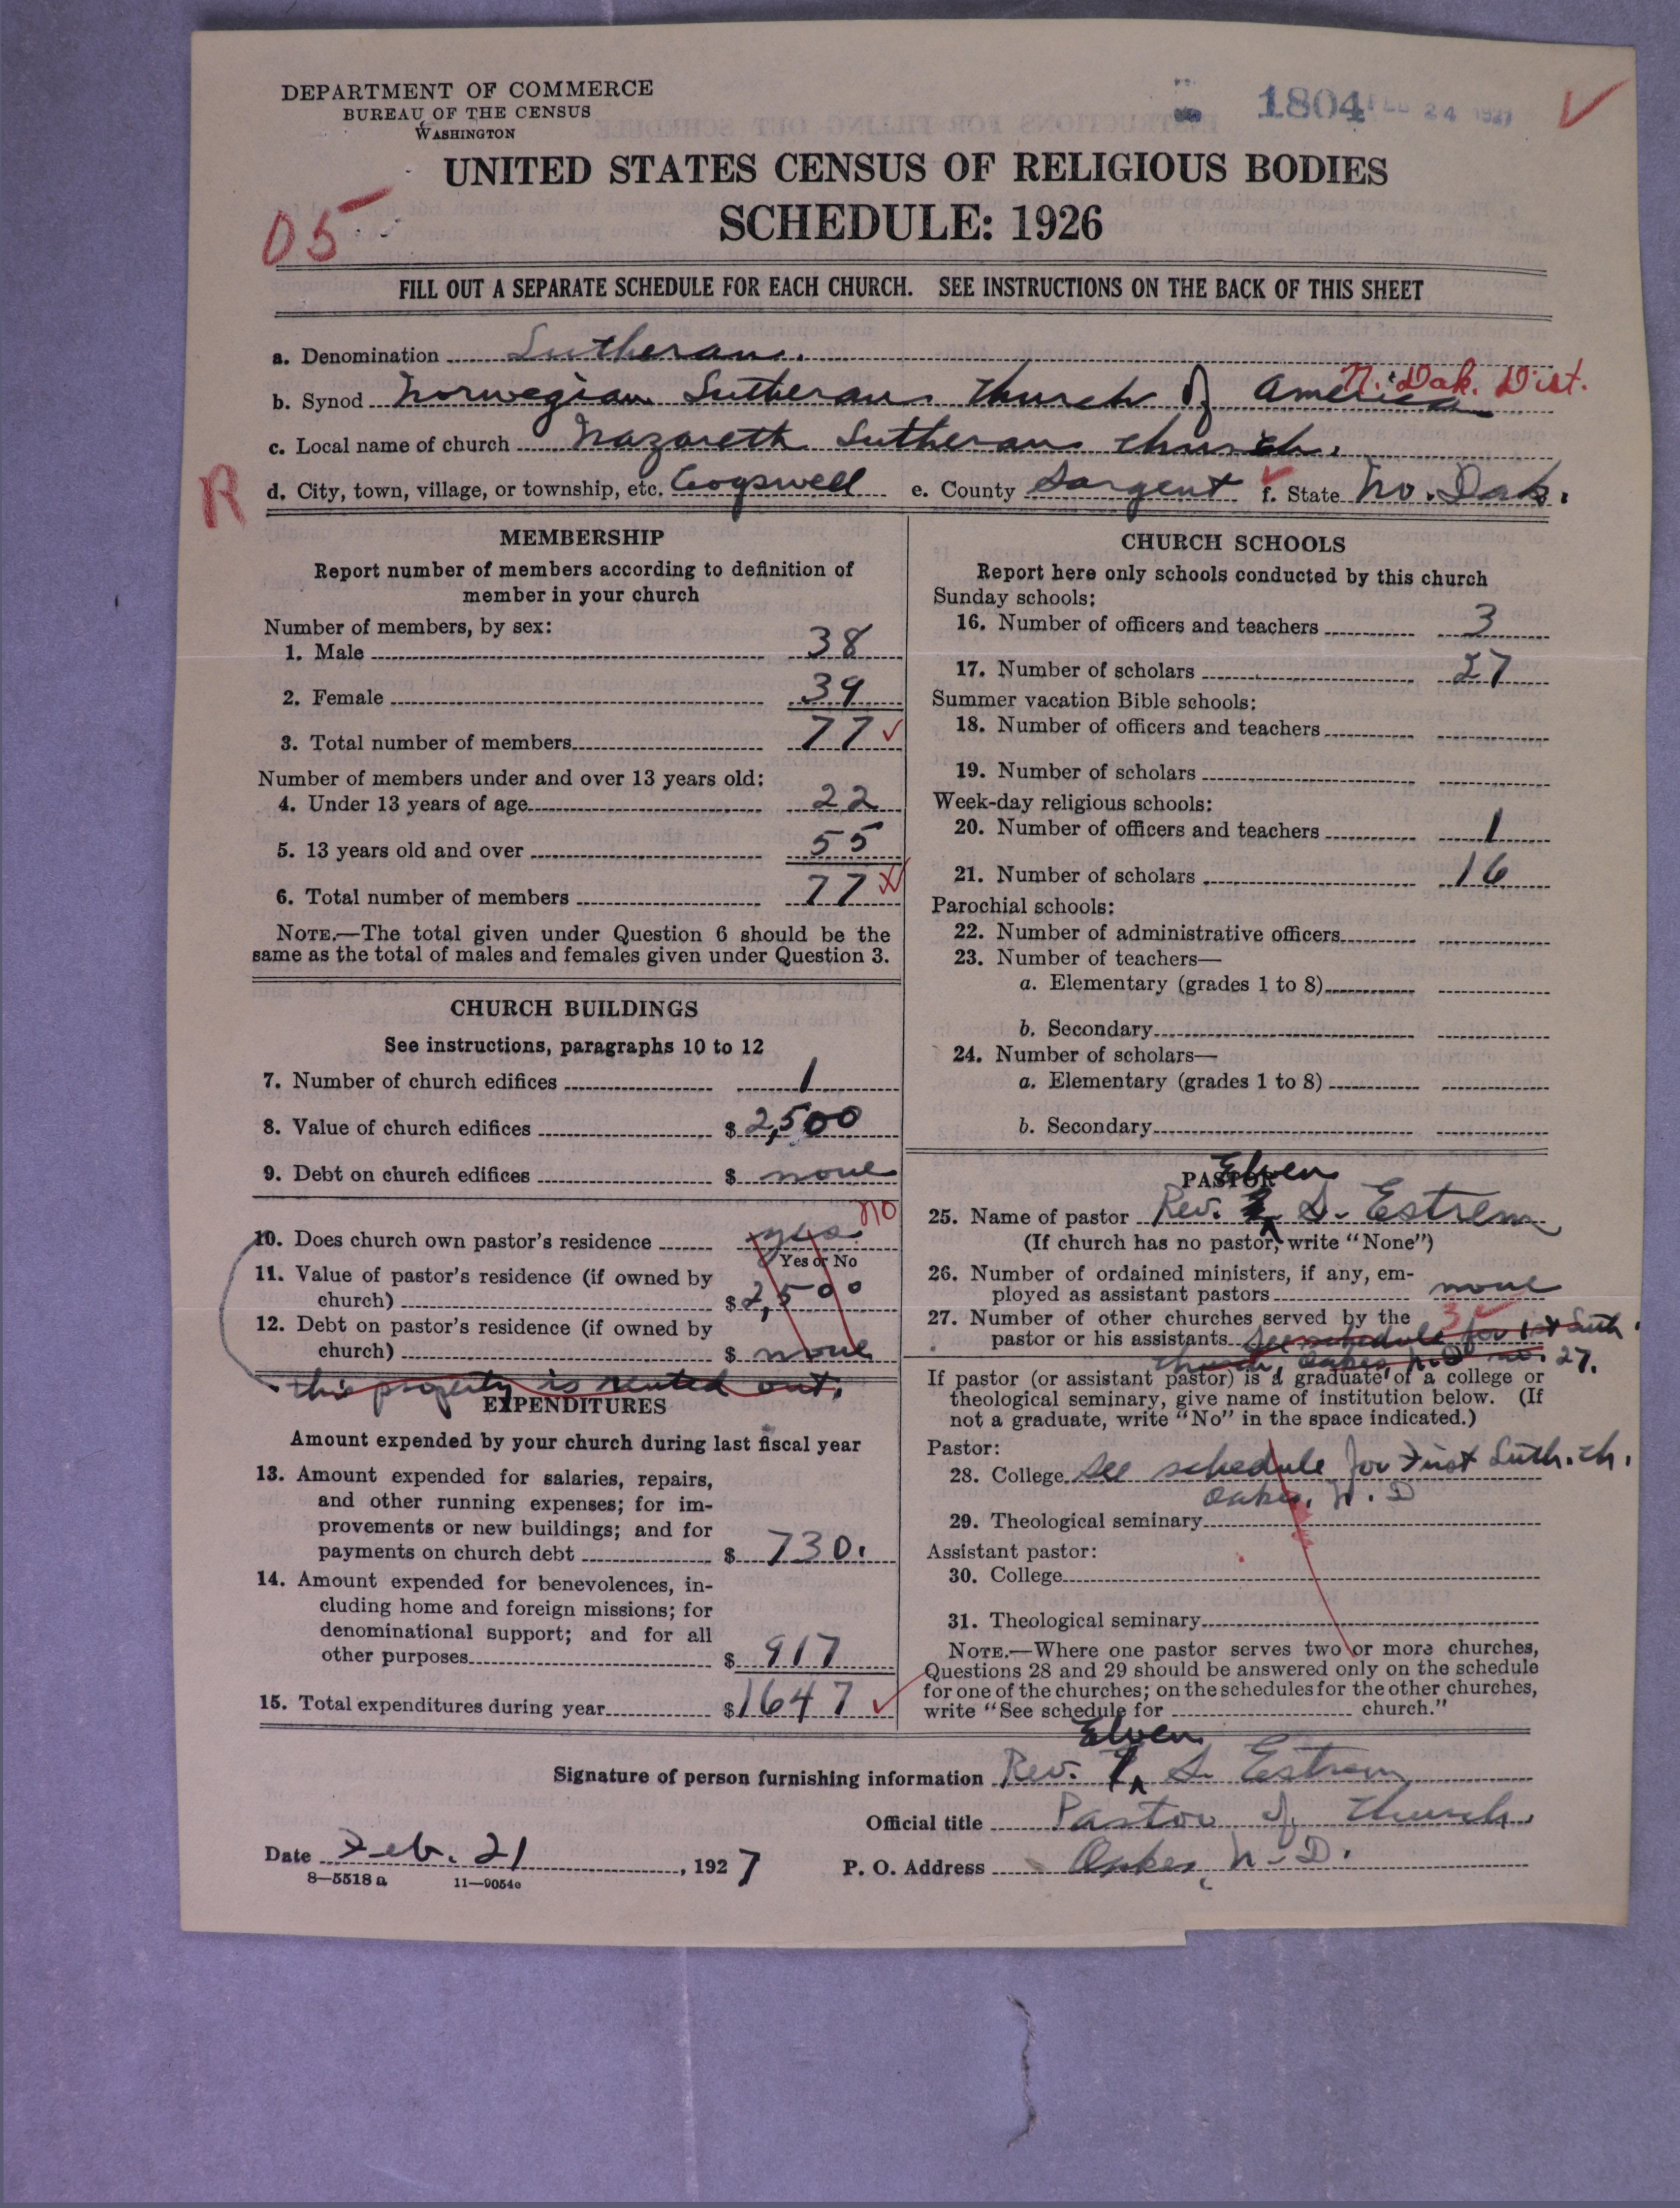 DEPARTMENT OF COMMERCE
BUREAU OF THE CENSUS
WASHINGTON
1804 FEB 24 1927
UNITED STATES CENSUS OF RELIGIOUS BODIES
SCHEDULE: 1926
05
FILL OUT A SEPARATE SCHEDULE FOR EACH CHURCH. SEE INSTRUCTIONS ON THE BACK OF THIS SHEET
a. Denomination Lutheran.
N. Dak. Dist.
b. Synod Norwegian Lutheran Church of America
c. Local name of church Nazareth Lutheran church.
R
d. City, town, village, or township, etc. Cogswell e. County Sargent f. State No. Dak.
MEMBERSHIP
Report number of members according to definition of
member in your church
Number of members, by sex:
1. Male 38
2. Female 39
3. Total number of members 77
Number of members under and over 13 years old:
4. Under 13 years of age 22
5. 13 years old and over 55
6. Total number of members 77
NOTE.—The total given under Question 6 should be the
same as the total of males and females given under Question 3.
CHURCH BUILDINGS
See instructions, paragraphs 10 to 12
7. Number of church edifices 1
8. Value of church edifices $ 2,500
9. Debt on church edifices $ none
no
10. Does church own pastor's residence yes
Yes or No
11. Value of pastor's residence (if owned by
church) $ 2,500
12. Debt on pastor's residence (if owned by
church) $ none
this property is rented out.
EXPENDITURES
Amount expended by your church during last fiscal year
13. Amount expended for salaries, repairs,
and other running expenses; for im-
provements or new buildings; and for
payments on church debt $ 730.
14. Amount expended for benevolences, in-
cluding home and foreign missions; for
denominational support; and for all
other purposes $ 917
15. Total expenditures during year $ 1647
CHURCH SCHOOLS
Report here only schools conducted by this church
Sunday schools:
16. Number of officers and teachers 3
17. Number of scholars 27
Summer vacation Bible schools:
18. Number of officers and teachers
19. Number of scholars
Week-day religious schools:
20. Number of officers and teachers 1
21. Number of scholars 16
Parochial schools:
22. Number of administrative officers
23. Number of teachers—
a. Elementary (grades 1 to 8)
b. Secondary
24. Number of scholars—
a. Elementary (grades 1 to 8)
b. Secondary
PASTOR
Elven
25. Name of pastor Rev. S. Estrem
(If church has no pastor, write "None")
26. Number of ordained ministers, if any, em-
ployed as assistant pastors none
27. Number of other churches served by the 3
pastor or his assistants See schedule for 1st Luth.
church, Oakes, N.D. no. 27.
If pastor (or assistant pastor) is a graduate of a college or
theological seminary, give name of institution below. (If
not a graduate, write "No" in the space indicated.)
Pastor:
28. College See schedule for First Luth. ch.
Oakes, N. D
29. Theological seminary
Assistant pastor:
30. College
31. Theological seminary
NOTE.—Where one pastor serves two or more churches,
Questions 28 and 29 should be answered only on the schedule
for one of the churches; on the schedules for the other churches,
write "See schedule for church."
Elven
Signature of person furnishing information Rev. S. Estrem
Official title Pastor of church.
Date Feb. 21, 1927 P. O. Address Oakes, N. D.
8—5518 a 11—9054c